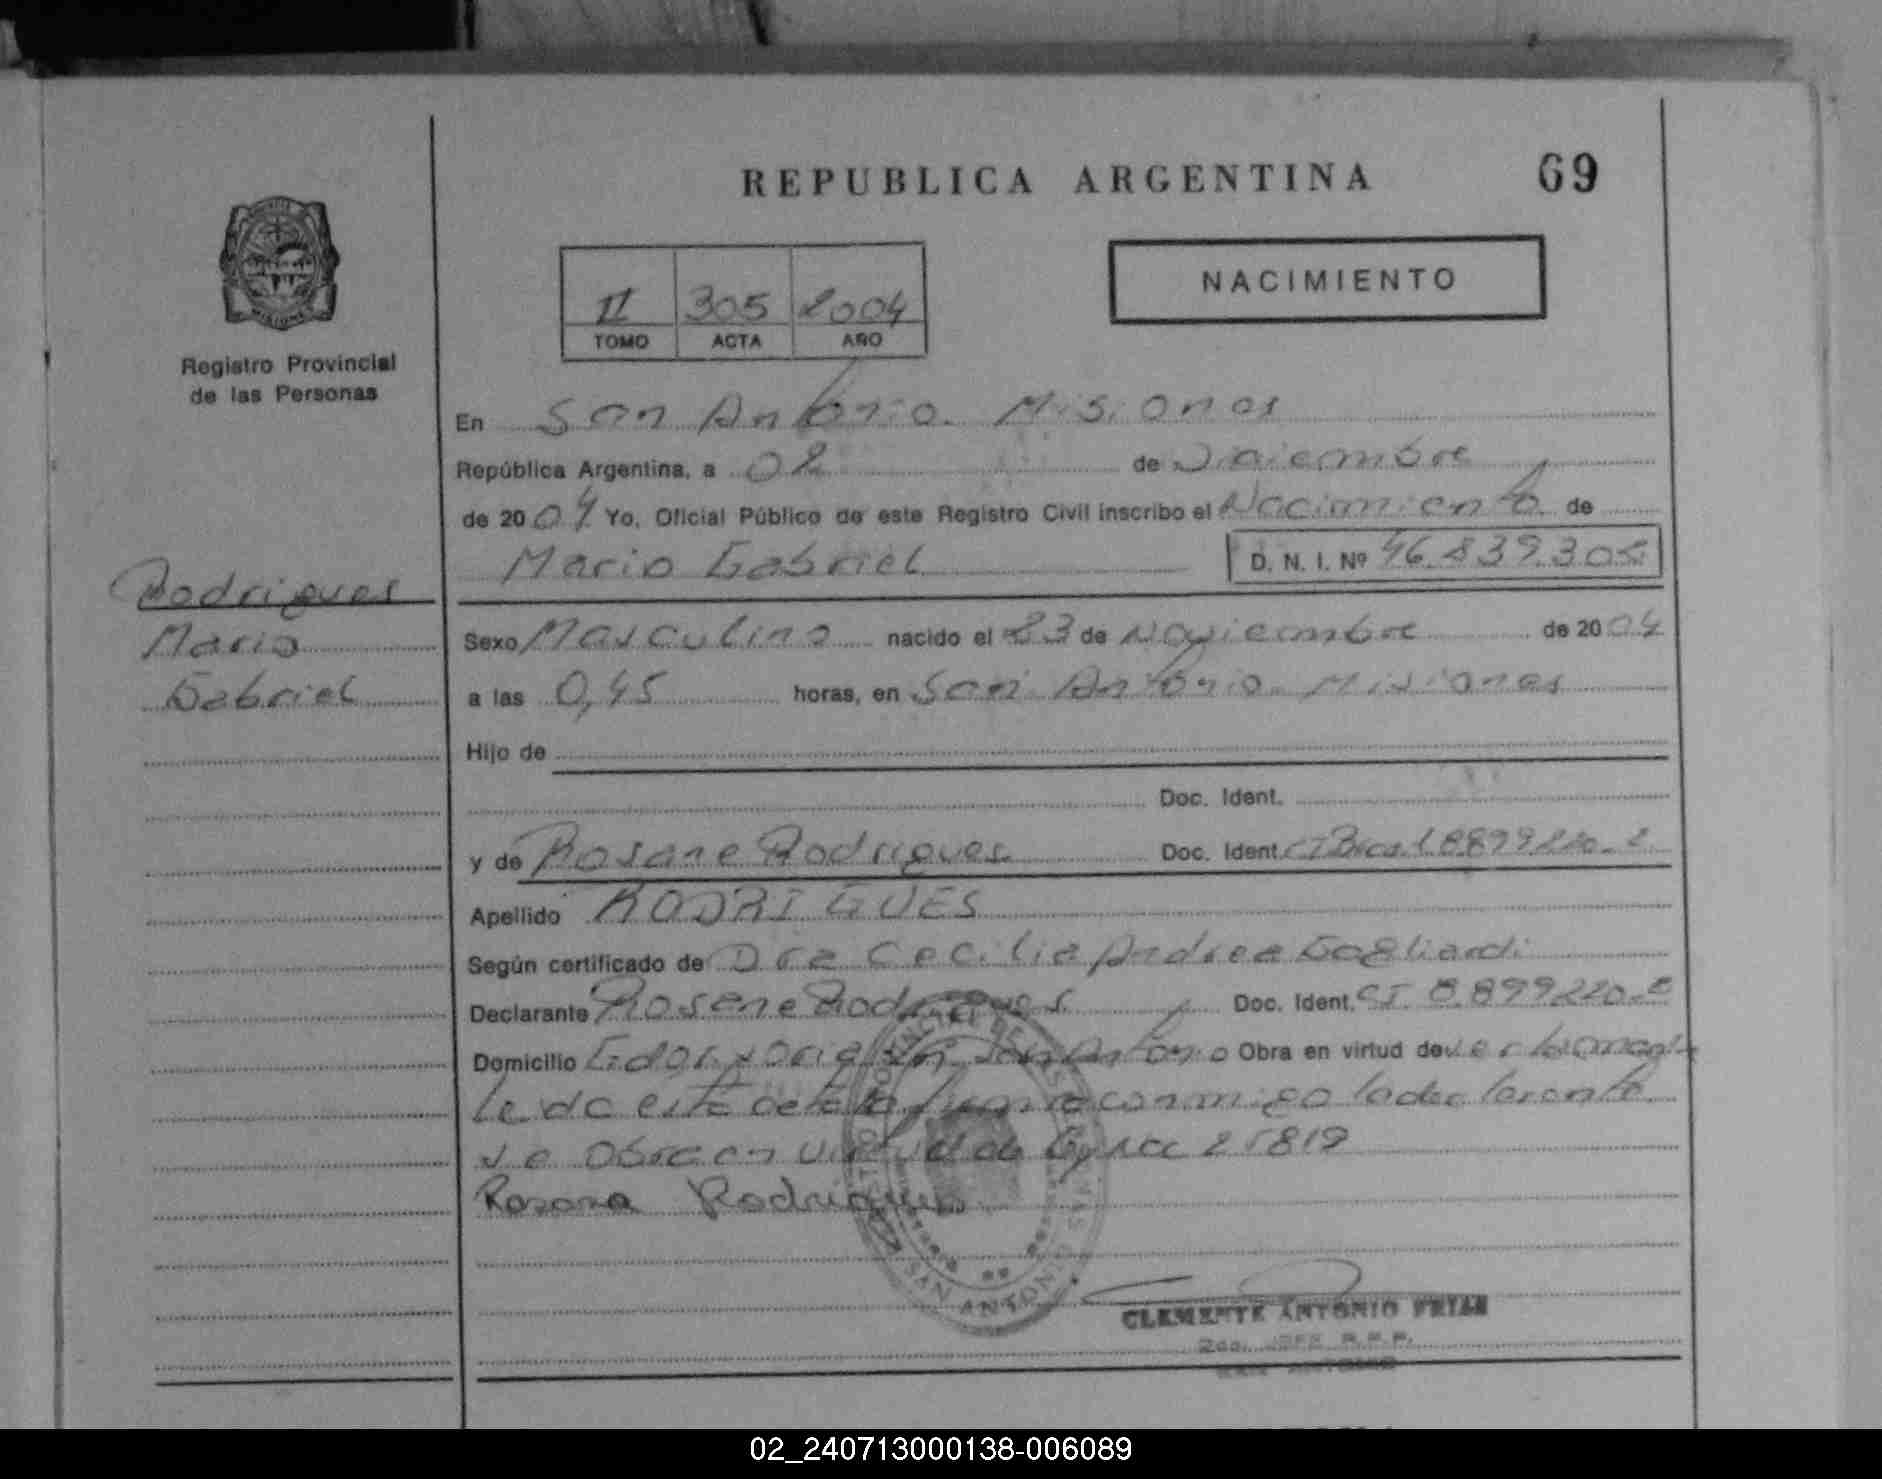 REPUBLICA ARGENTINA
69
NACIMIENTO
II 305 2004
TOMO ACTA AÑO
Registro Provincial
de las Personas
En San Antonio Misiones
República Argentina, a 02 de Diciembre
de 2004 Yo, Oficial Público de este Registro Civil inscribo el Nacimiento de
Mario Gabriel D. N. I. Nº 46.839.305
Rodrigues
Mario
Gabriel
Sexo Masculino nacido el 23 de Noviembre de 2004
a las 0,45 horas, en San Antonio Misiones
Hijo de
Doc. Ident.
y de Rosane Rodrigues Doc. Ident. 8899220-2
Apellido RODRIGUES
Según certificado de Dra Cecilia Andrea Gagliardi
Declarante Rosane Rodrigues Doc. Ident. CI. 8.899220-2
Domicilio San Antonio Obra en virtud de
Leda esta acta firma conmigo la declarante
se Obra en virtud de 25819
Rosane Rodrigues
SAN ANTONIO
CLEMENTE ANTONIO FRIAS
2do. JEFE R.P.P.
SAN ANTONIO
02_240713000138-006089